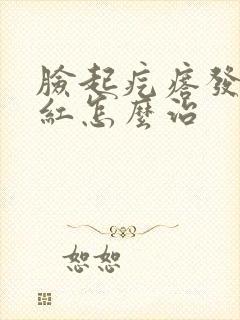 臉起疙瘩發
紅怎麼治
恕恕